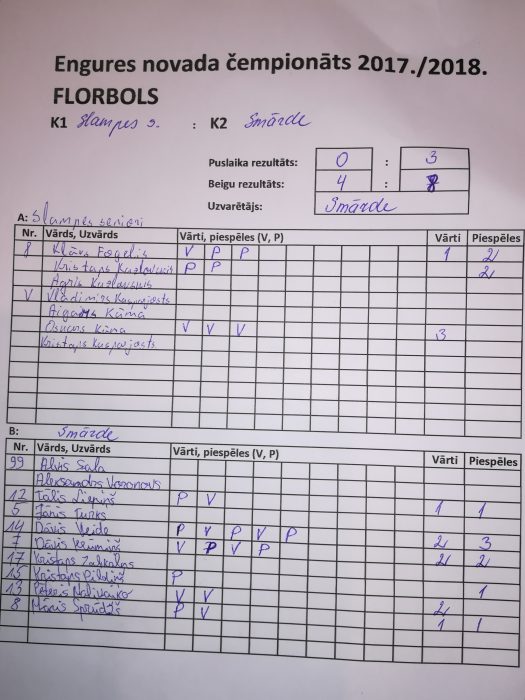 Engures novada čempionāts 2017./2018.
FLORBOLS
K1 Slampes s. : K2 Smārde
Puslaika rezultāts: 0 : 3
Beigu rezultāts: 4 : 8
Uzvarētājs: Smārde
A: Slampes seniori
Nr. Vārds, Uzvārds Vārti, piespēles (V, P) Vārti Piespēles
8 Klāvs Fogelis V P P 1 2
Kristaps Kuzlovskis P P 2
Agris Kuzlovskis
V Vladimirs Kasparjosts
Aigars Kūma
Oskars Kūna V V V 3
Kristaps Kasparjosts
B: Smārde
Nr. Vārds, Uzvārds Vārti, piespēles (V, P) Vārti Piespēles
99 Alvis Sala
Aleksandrs
12 Tālis Liepiņš P V 1 1
5 Jānis Turks
14 Dāvis Veide P V P V P 2 3
7 Dāvis Krūmiņš V P V P 2 2
17 Kristaps Zaļkalns
15 Kristaps Pildiņš P 1
13 Pēteris Nalivaiko V V 2
8 Māris Sprūdžs P V 1 1